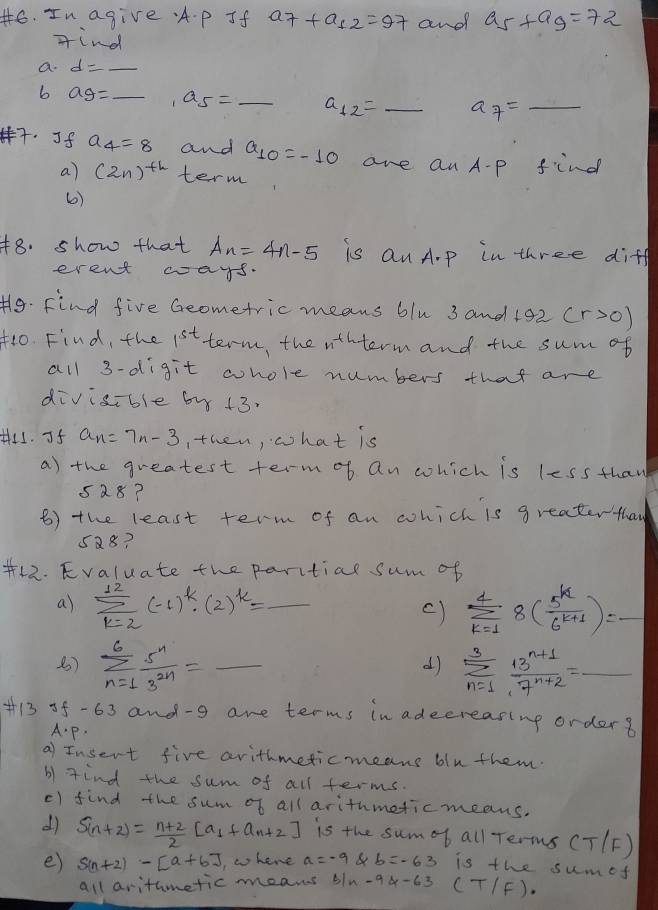 #6. In agive A.p If a7+a12=97 and a5+a9=72
Find
a. d=__
b a9=__ , a5=__ a12=__ a7=__
#7. If a4=8 and a10=-10 are an A.P find
a) (2n)th term
b)
#8. Show that An=4n-5 is an A.P in three diff
erent ways.
#9. Find five Geometric means b/n 3 and 192 (r>0)
#10. Find, the 1st term, the nth term and the sum of
all 3-digit whole numbers that are
divisible by 13.
#11. If an=7n-3, then, what is
a) the greatest term of an which is less than
528?
b) the least term of an which is greater than
528?
#12. Evaluate the paritial sum of
a) 12 ∑ k=2 (-1)^k.(2)^k=__ c) 4 ∑ k=1 8(5^k/6^(k+1))=__
b) 6 ∑ n=1 5^n/3^(2n) = __ d) 3 ∑ n=1 13^(n+1)/7^(n+2)=__
#13 If -63 and -9 are terms in a decreasing order of
A.p.
a) Insert five arithmetic means b/n them.
b) Find the sum of all terms.
c) find the sum of all arithmetic means.
d) S(n+2)=n+2/2 [a1+an+2] is the sum of all Terms (T/F)
e) S(n+2) -[a+b], where a=-9 & b=-63 is the sum of
all arithmetic means b/n -9 & -63 (T/F).